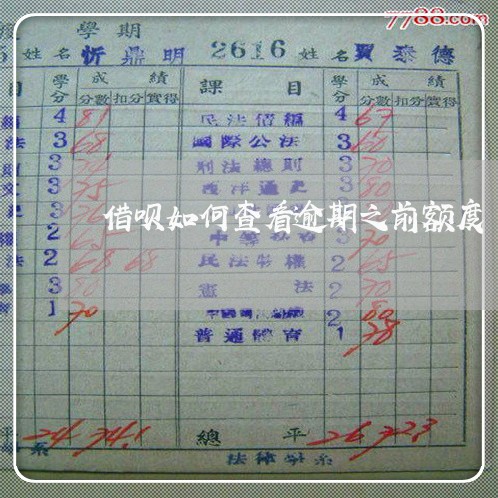 7788.com
學期
姓名 忻鼎明 2616 姓名 賈泰德
目 學分 成績 課目 學分 成績
分數 扣分 實得 分數 扣分 實得
4 81 民法債編 4 67
法 3 68 國際公法 3 60
3 刑法總則 3 70
3 75 西洋通史 3 80
3
借呗如何查看逾期之前额度
2 65 3 70
法 2 68 68 民法物權 2 65
3 80 憲法 2 70
1 70 2 80
普通體育 1 78
平 24 74.1 總平 26 72.3
系 法律學系